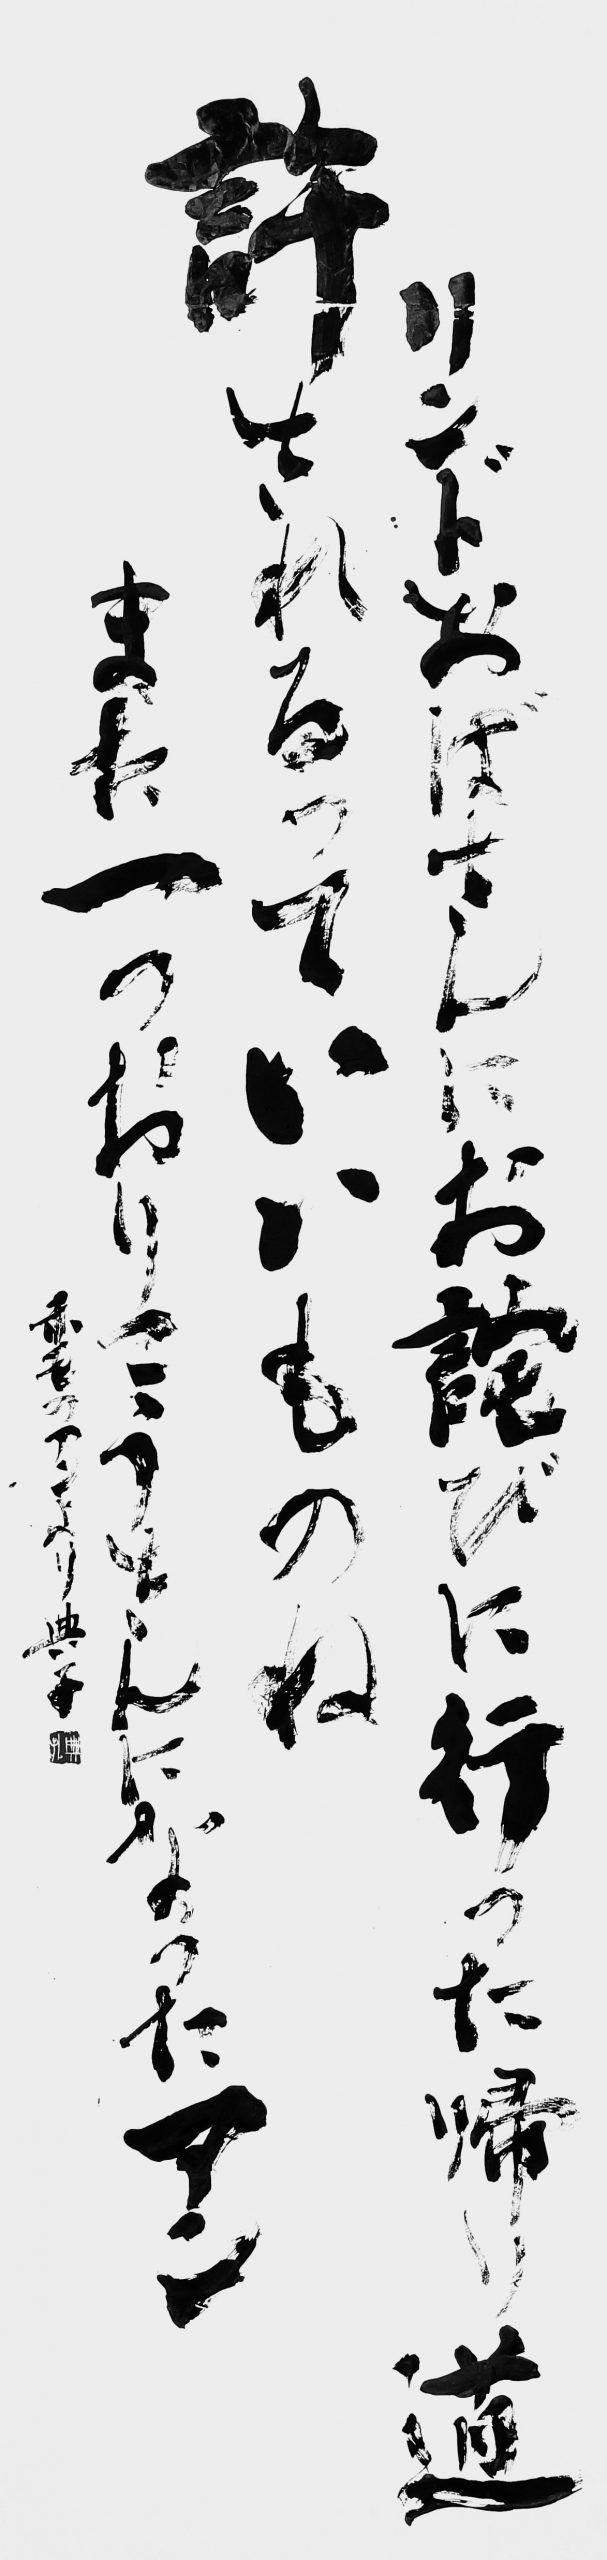 リンドおばさんにお詫びに行った帰り道
許されるっていいものね
また一つおりこうさんになったアン
赤毛のアンより 典子